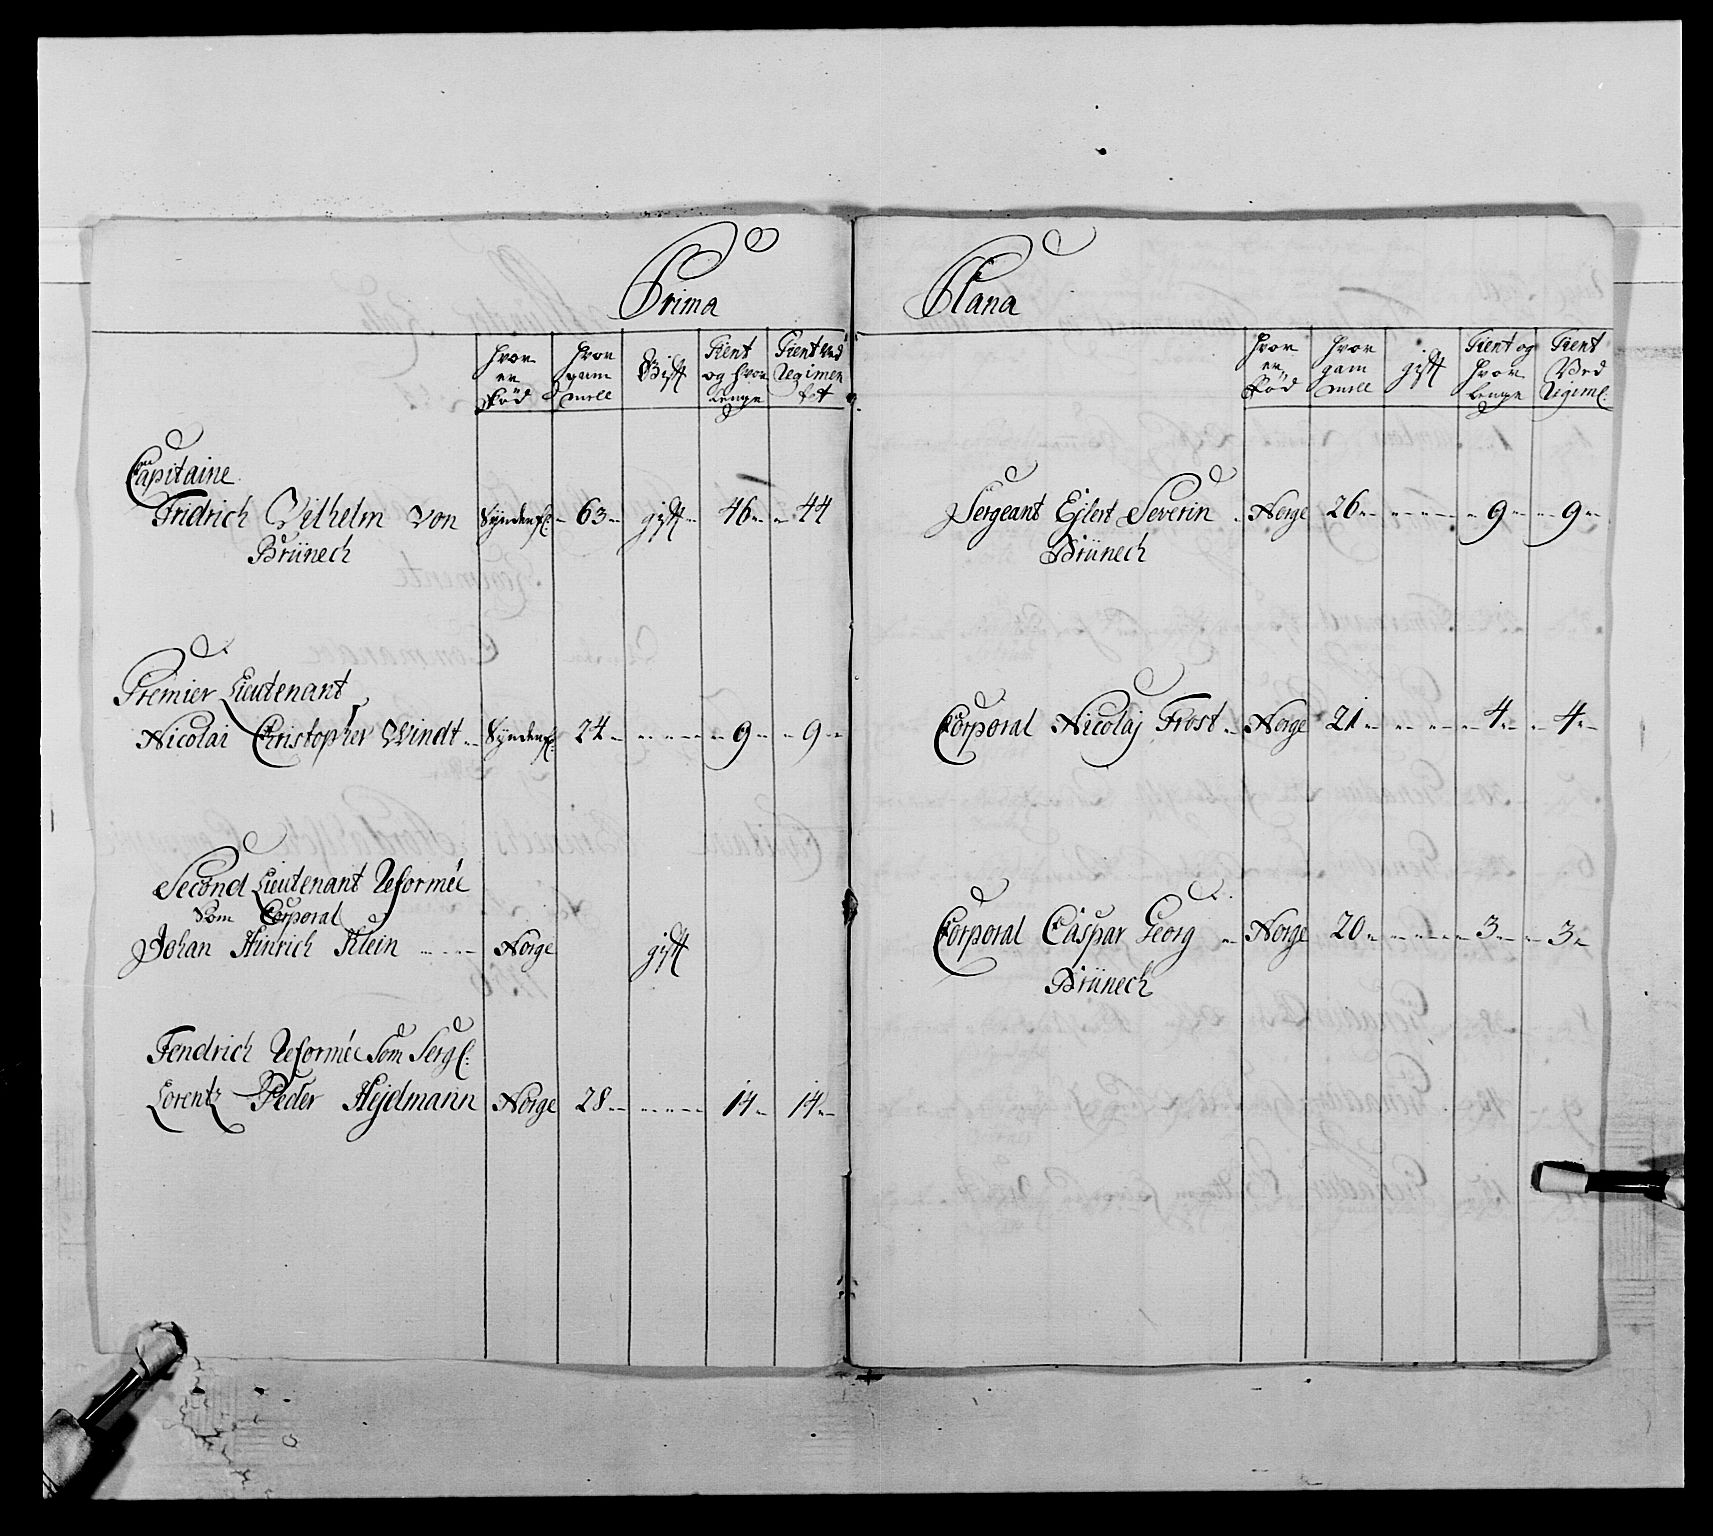 Prima Plana
hvor er Fød | hvor gam mell | Gift | Tient og hvor Lenge | Tient ved Regimen tet
Capitaine
Fridrich Vilhelm von | Syndenf: | 63 | gift | 46 | 44
Brünech
Premier Lieutenant
Nicolai Christopher Windt | Syndenf: | 24 | | 9 | 9
Second Lieutenant Reformée
som Corporal
Johan Hinrich Klein | Norge | | gift
Fendrich Reformée som Serg:
Lorentz Peder Hejelmann | Norge | 28 | | 14 | 14
hvor er Fød | hvor gam mell | gift | Tient og hvor Lenge | Tient Ved Regim:
Sergeant Ejlert Severin | Norge | 26 | | 9 | 9
Brünech
Corporal Nicolaj Frost | Norge | 21 | | 4 | 4
Corporal Caspar Georg | Norge | 20 | | 3 | 3
Brünech